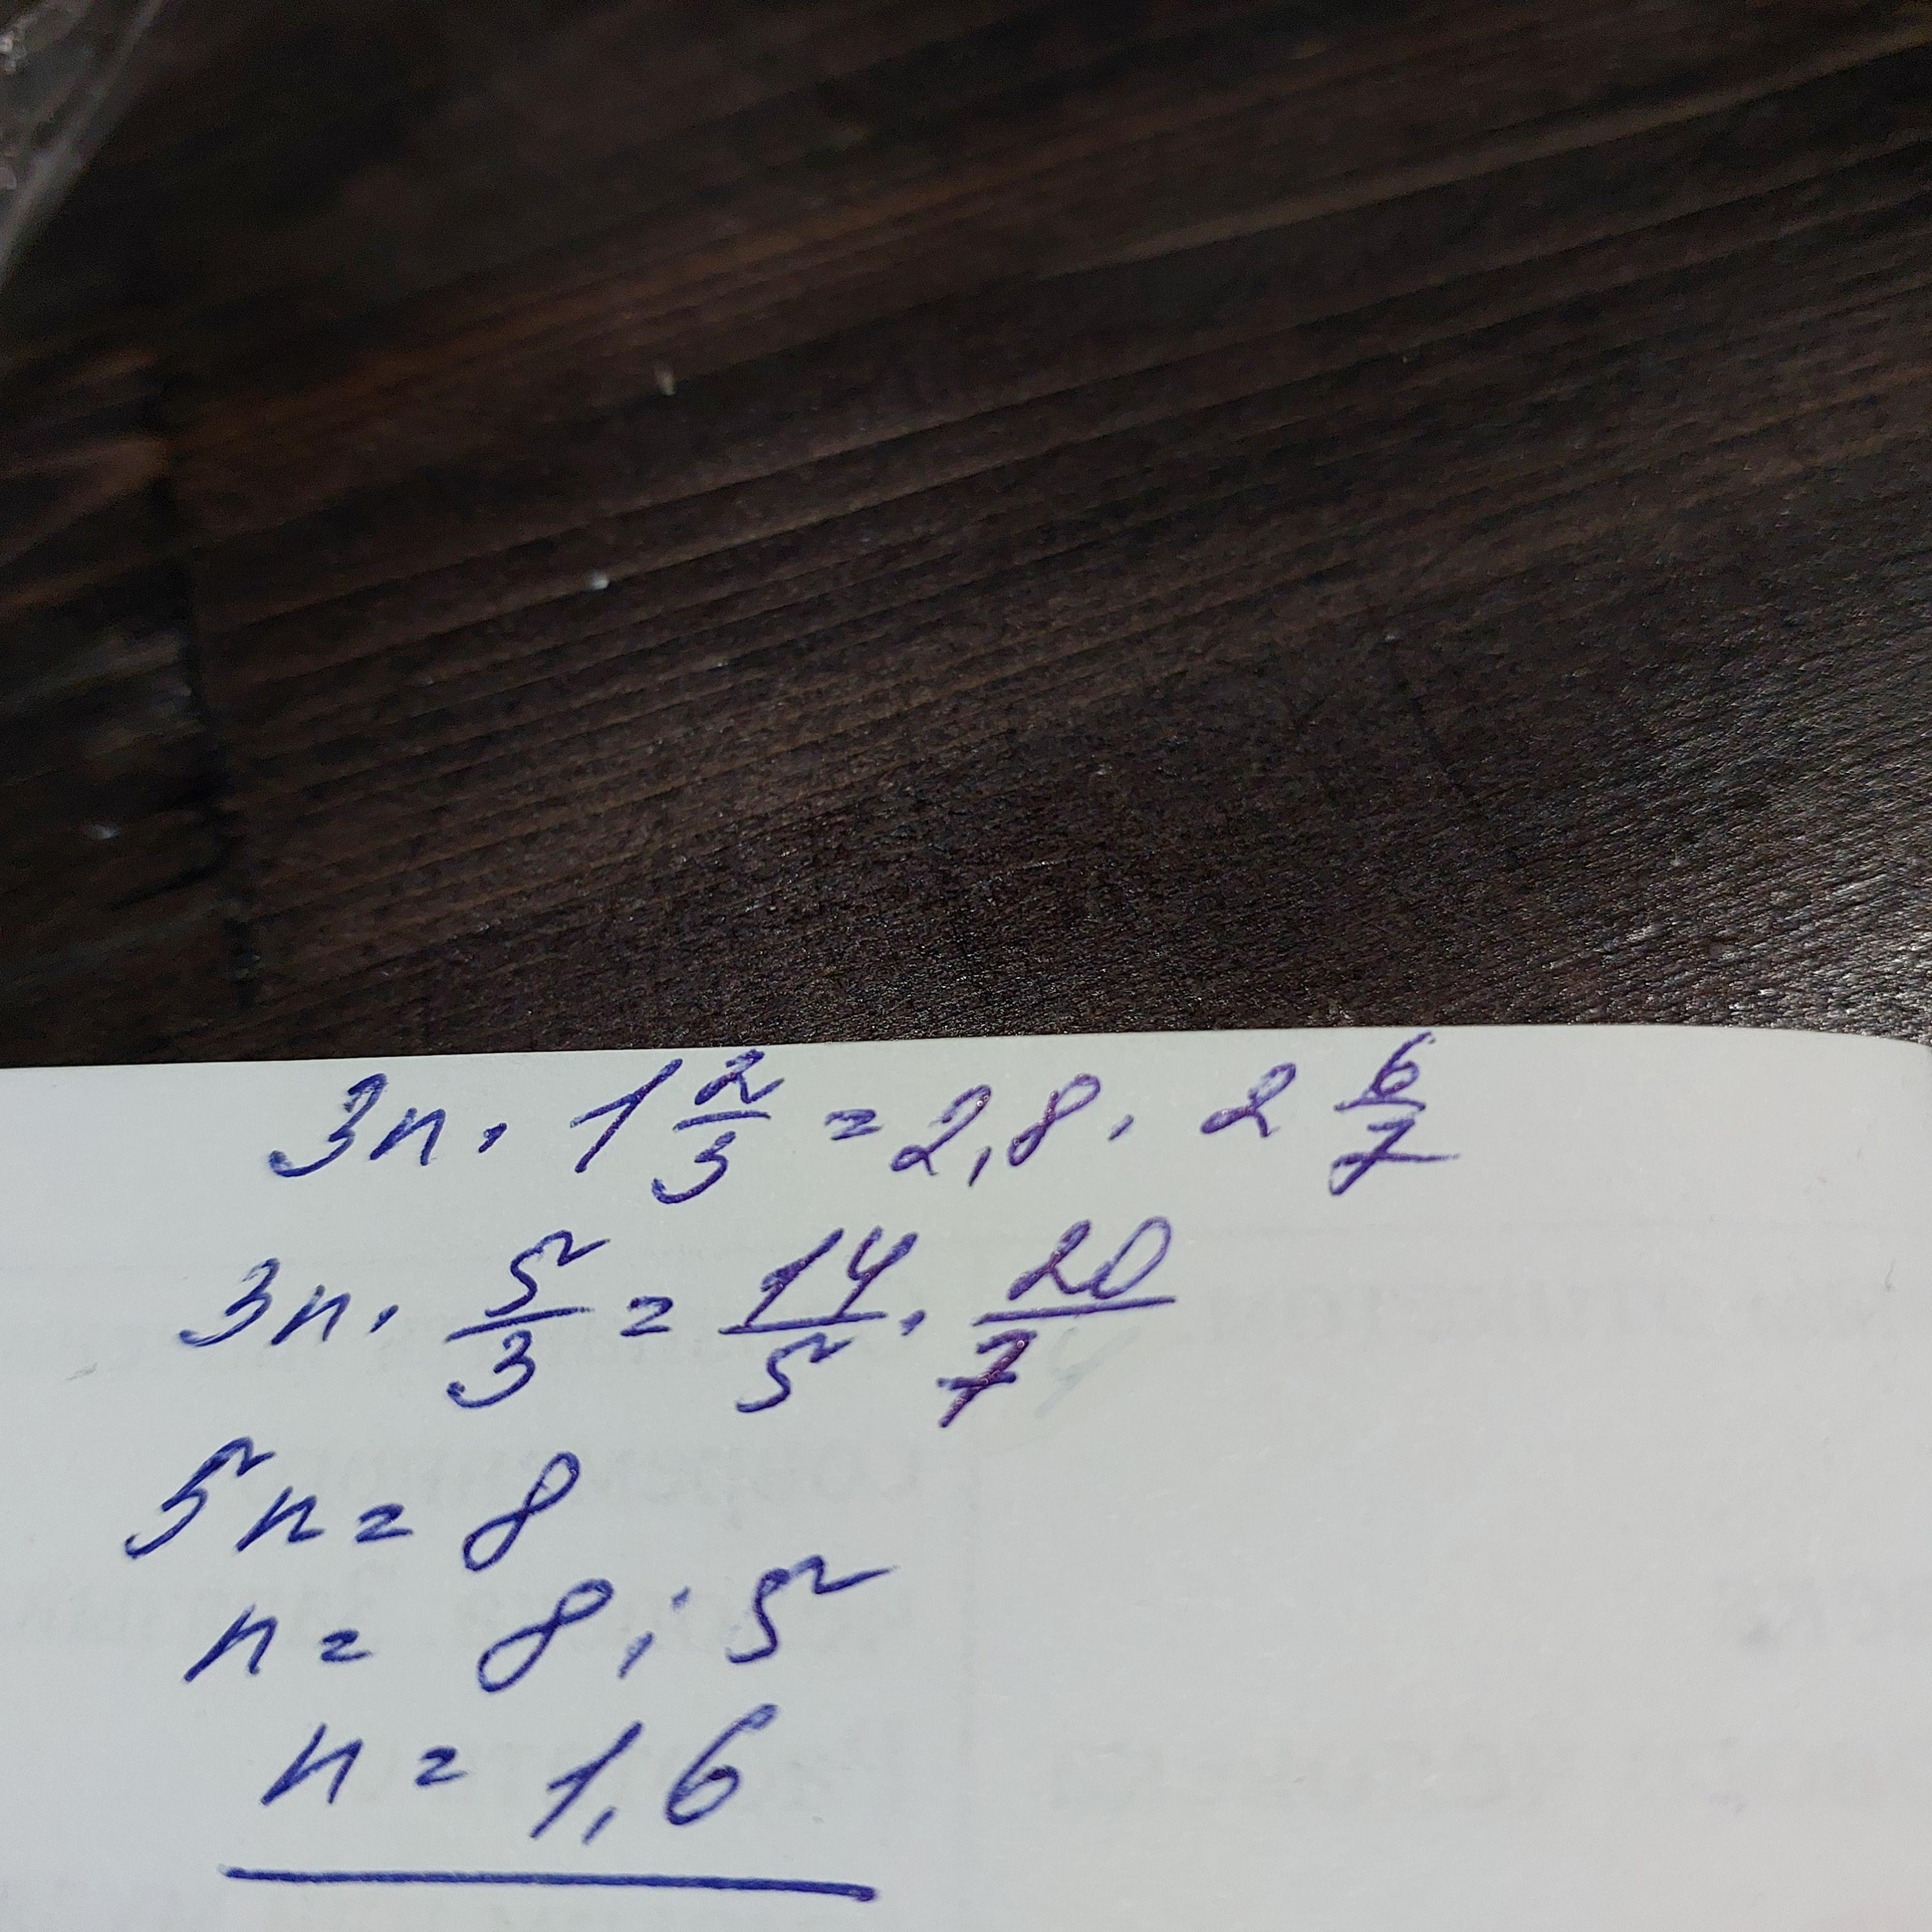 3n · 1 2/3 = 2,8 · 2 6/7
3n · 5/3 = 14/5 · 20/7
5n = 8
n = 8 : 5
n = 1,6